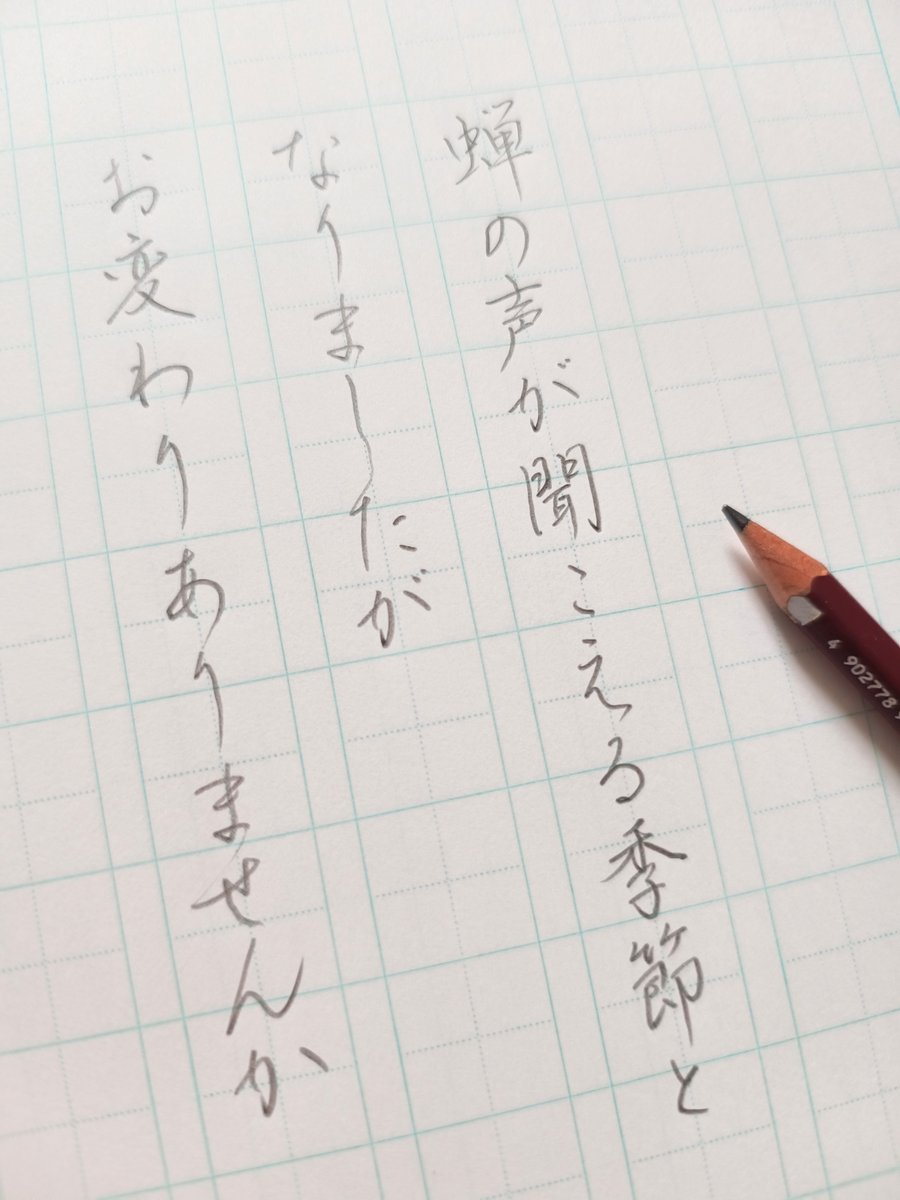 蝉の声が聞こえる季節と
なりましたが
お変わりありませんか
4 902778